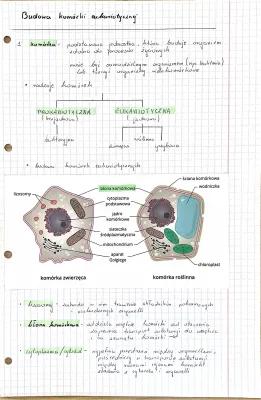 Budowa komórki eukariotycznej
1. komórka - podstawowa jednostka, która buduje organizm
zdolna do procesów życiowych
może być samodzielnym organizmem (np. bakterie)
lub tworzyć organizmy wielokomórkowe
• rodzaje komórek
PROKARIOTYCZNA EUKARIOTYCZNA
(bezjądrowa) (jądrowa)
bakteryjna roślinna
zwierzęca grzybowa
• budowa komórek eukariotycznych
ściana komórkowa
lizosomy
błona komórkowa
wodniczka
cytoplazma
podstawowa
jądro
komórkowe
siateczka
śródplazmatyczna
mitochondrium
aparat
Golgiego
chloroplast
komórka zwierzęca
komórka roślinna
• lizosomy - zachodzi w nim trawienie składników pokarmowych
organelli
• błona komórkowa - oddziela wnętrze komórki od otoczenia
transport substancji do wnętrza
i na zewnątrz komórki
• cytoplazma/cytozol - wypełnia przestrzeń między organellami,
pośredniczy w transporcie substancji
między różnymi rejonami komórki
składa z cytozolu i organelli